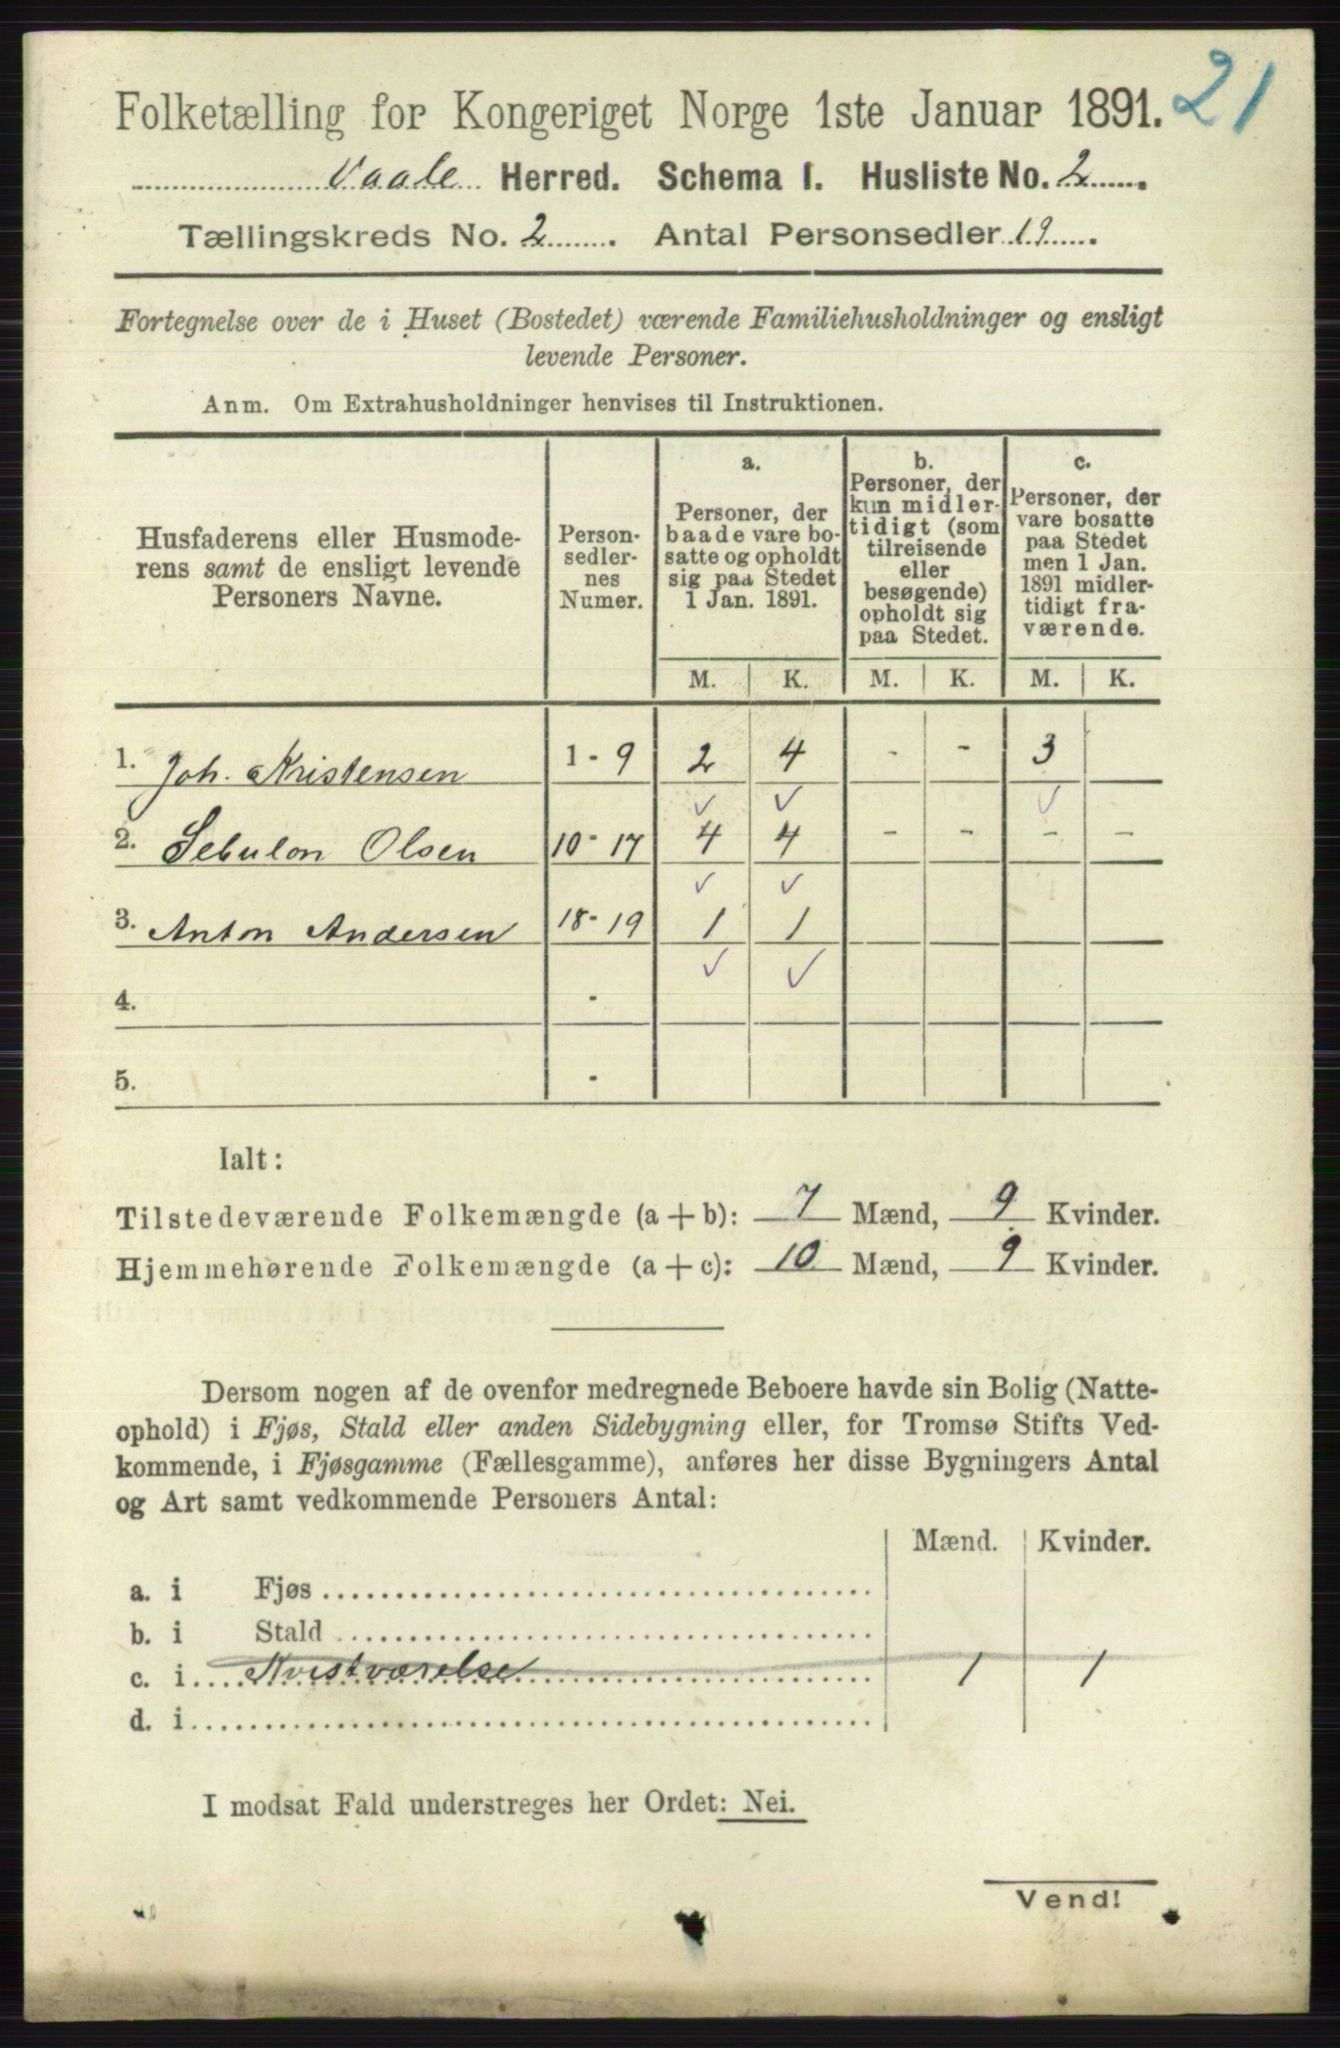 21
Folketælling for Kongeriget Norge 1ste Januar 1891.
Vaale Herred. Schema I. Husliste No. 2
Tællingskreds No. 2. Antal Personsedler 19.
Fortegnelse over de i Huset (Bostedet) værende Familiehusholdninger og ensligt
levende Personer.
Anm. Om Extrahusholdninger henvises til Instruktionen.
Husfaderens eller Husmode-
rens samt de ensligt levende
Personers Navne.
Person-
sedler-
nes
Numer.
a.
Personer, der
baade vare bo-
satte og opholdt
sig paa Stedet
1 Jan. 1891.
b.
Personer, der
kun midler-
tidigt (som
tilreisende
eller
besøgende)
opholdt sig
paa Stedet.
c.
Personer, der
vare bosatte
paa Stedet
men 1 Jan.
1891 midler-
tidigt fra-
værende.
M. K. M. K. M. K.
1. Joh. Kristensen 1 - 9 2 4 - - 3
✓ ✓ ✓
2. Sebulon Olsen 10 - 17 4 4 - - - -
✓ ✓
3. Anton Andersen 18 - 19 1 1
✓ ✓
4. -
5. -
Ialt:
Tilstedeværende Folkemængde (a + b): 7 Mænd, 9 Kvinder.
Hjemmehørende Folkemængde (a + c): 10 Mænd, 9 Kvinder.
Dersom nogen af de ovenfor medregnede Beboere havde sin Bolig (Natte-
ophold) i Fjøs, Stald eller anden Sidebygning eller, for Tromsø Stifts Ved-
kommende, i Fjøsgamme (Fællesgamme), anføres her disse Bygningers Antal
og Art samt vedkommende Personers Antal:
Mænd. Kvinder.
a. i Fjøs
b. i Stald
c. i Kvistværelse 1 1
d. i
I modsat Fald understreges her Ordet: Nei.
Vend!